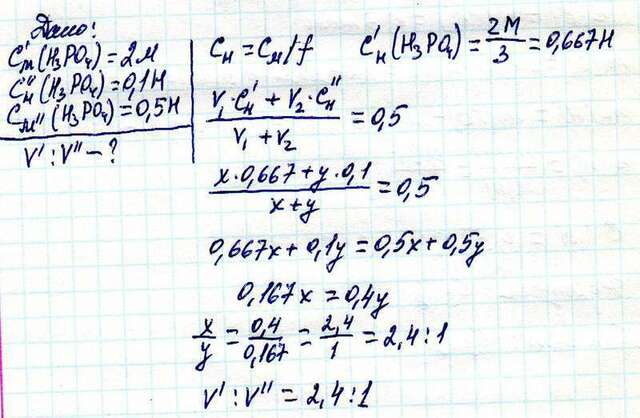 Дано:
C'м(H₃PO₄) = 2М
C''н(H₃PO₄) = 0,1Н
Cм''(H₃PO₄) = 0,5Н
V' : V'' – ?
Cн = Cм/f
C'н(H₃PO₄) = 2М/3 = 0,667Н
(V₁·C'н + V₂·C''н)/(V₁ + V₂) = 0,5
(x·0,667 + y·0,1)/(x+y) = 0,5
0,667x + 0,1y = 0,5x + 0,5y
0,167x = 0,4y
x/y = 0,4/0,167 = 2,4/1 = 2,4 : 1
V' : V'' = 2,4 : 1